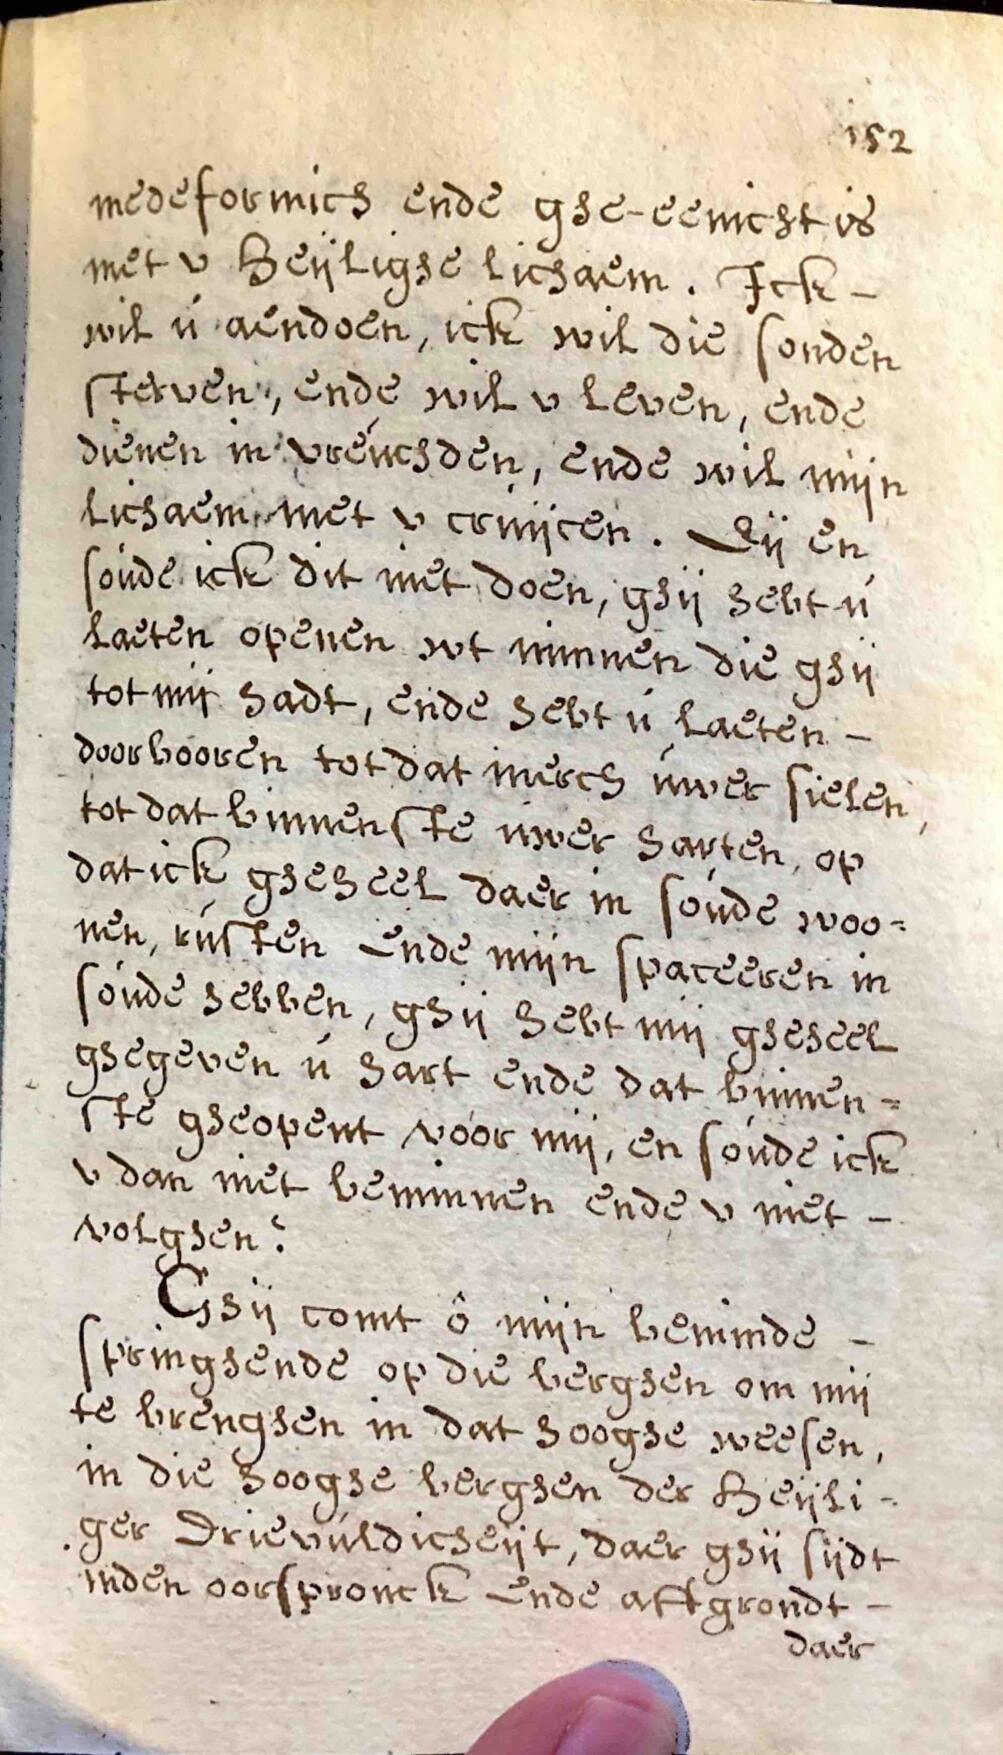 152
medeformich ende ghe-eenicht is
met v Heijlighe lichaem. Ick -
wil ú aendoen, ick wil die sonden
sterven, ende wil v leven, ende
dienen in vreúchden, ende wil mijn
lichaem met v crúijcen. Eij en
soúde ick dit niet doen, ghij hebt ú
laeten openen wt minnen die ghij
tot mij hadt, ende hebt ú laeten -
doorbooren tot dat merch úwer sielen,
tot dat binnenste úwer harten, op
dat ick gheheel daer in soúde woo=
nen, rústen ende mijn spaceeren in
soúde hebben, ghij hebt mij gheheel
ghegeven ú hart ende dat binnen=
ste gheopent voor mij, en soúde ick
v dan niet beminnen ende v niet -
volghen?
Ghij comt ô mijn beminde -
springhende op die berghen om mij
te brenghen in dat hooghe weesen,
in die hooghe berghen der Heijli=
ger Drievúldicheijt, daer ghij sijdt
inden oorspronck ende aftgrondt -
daer